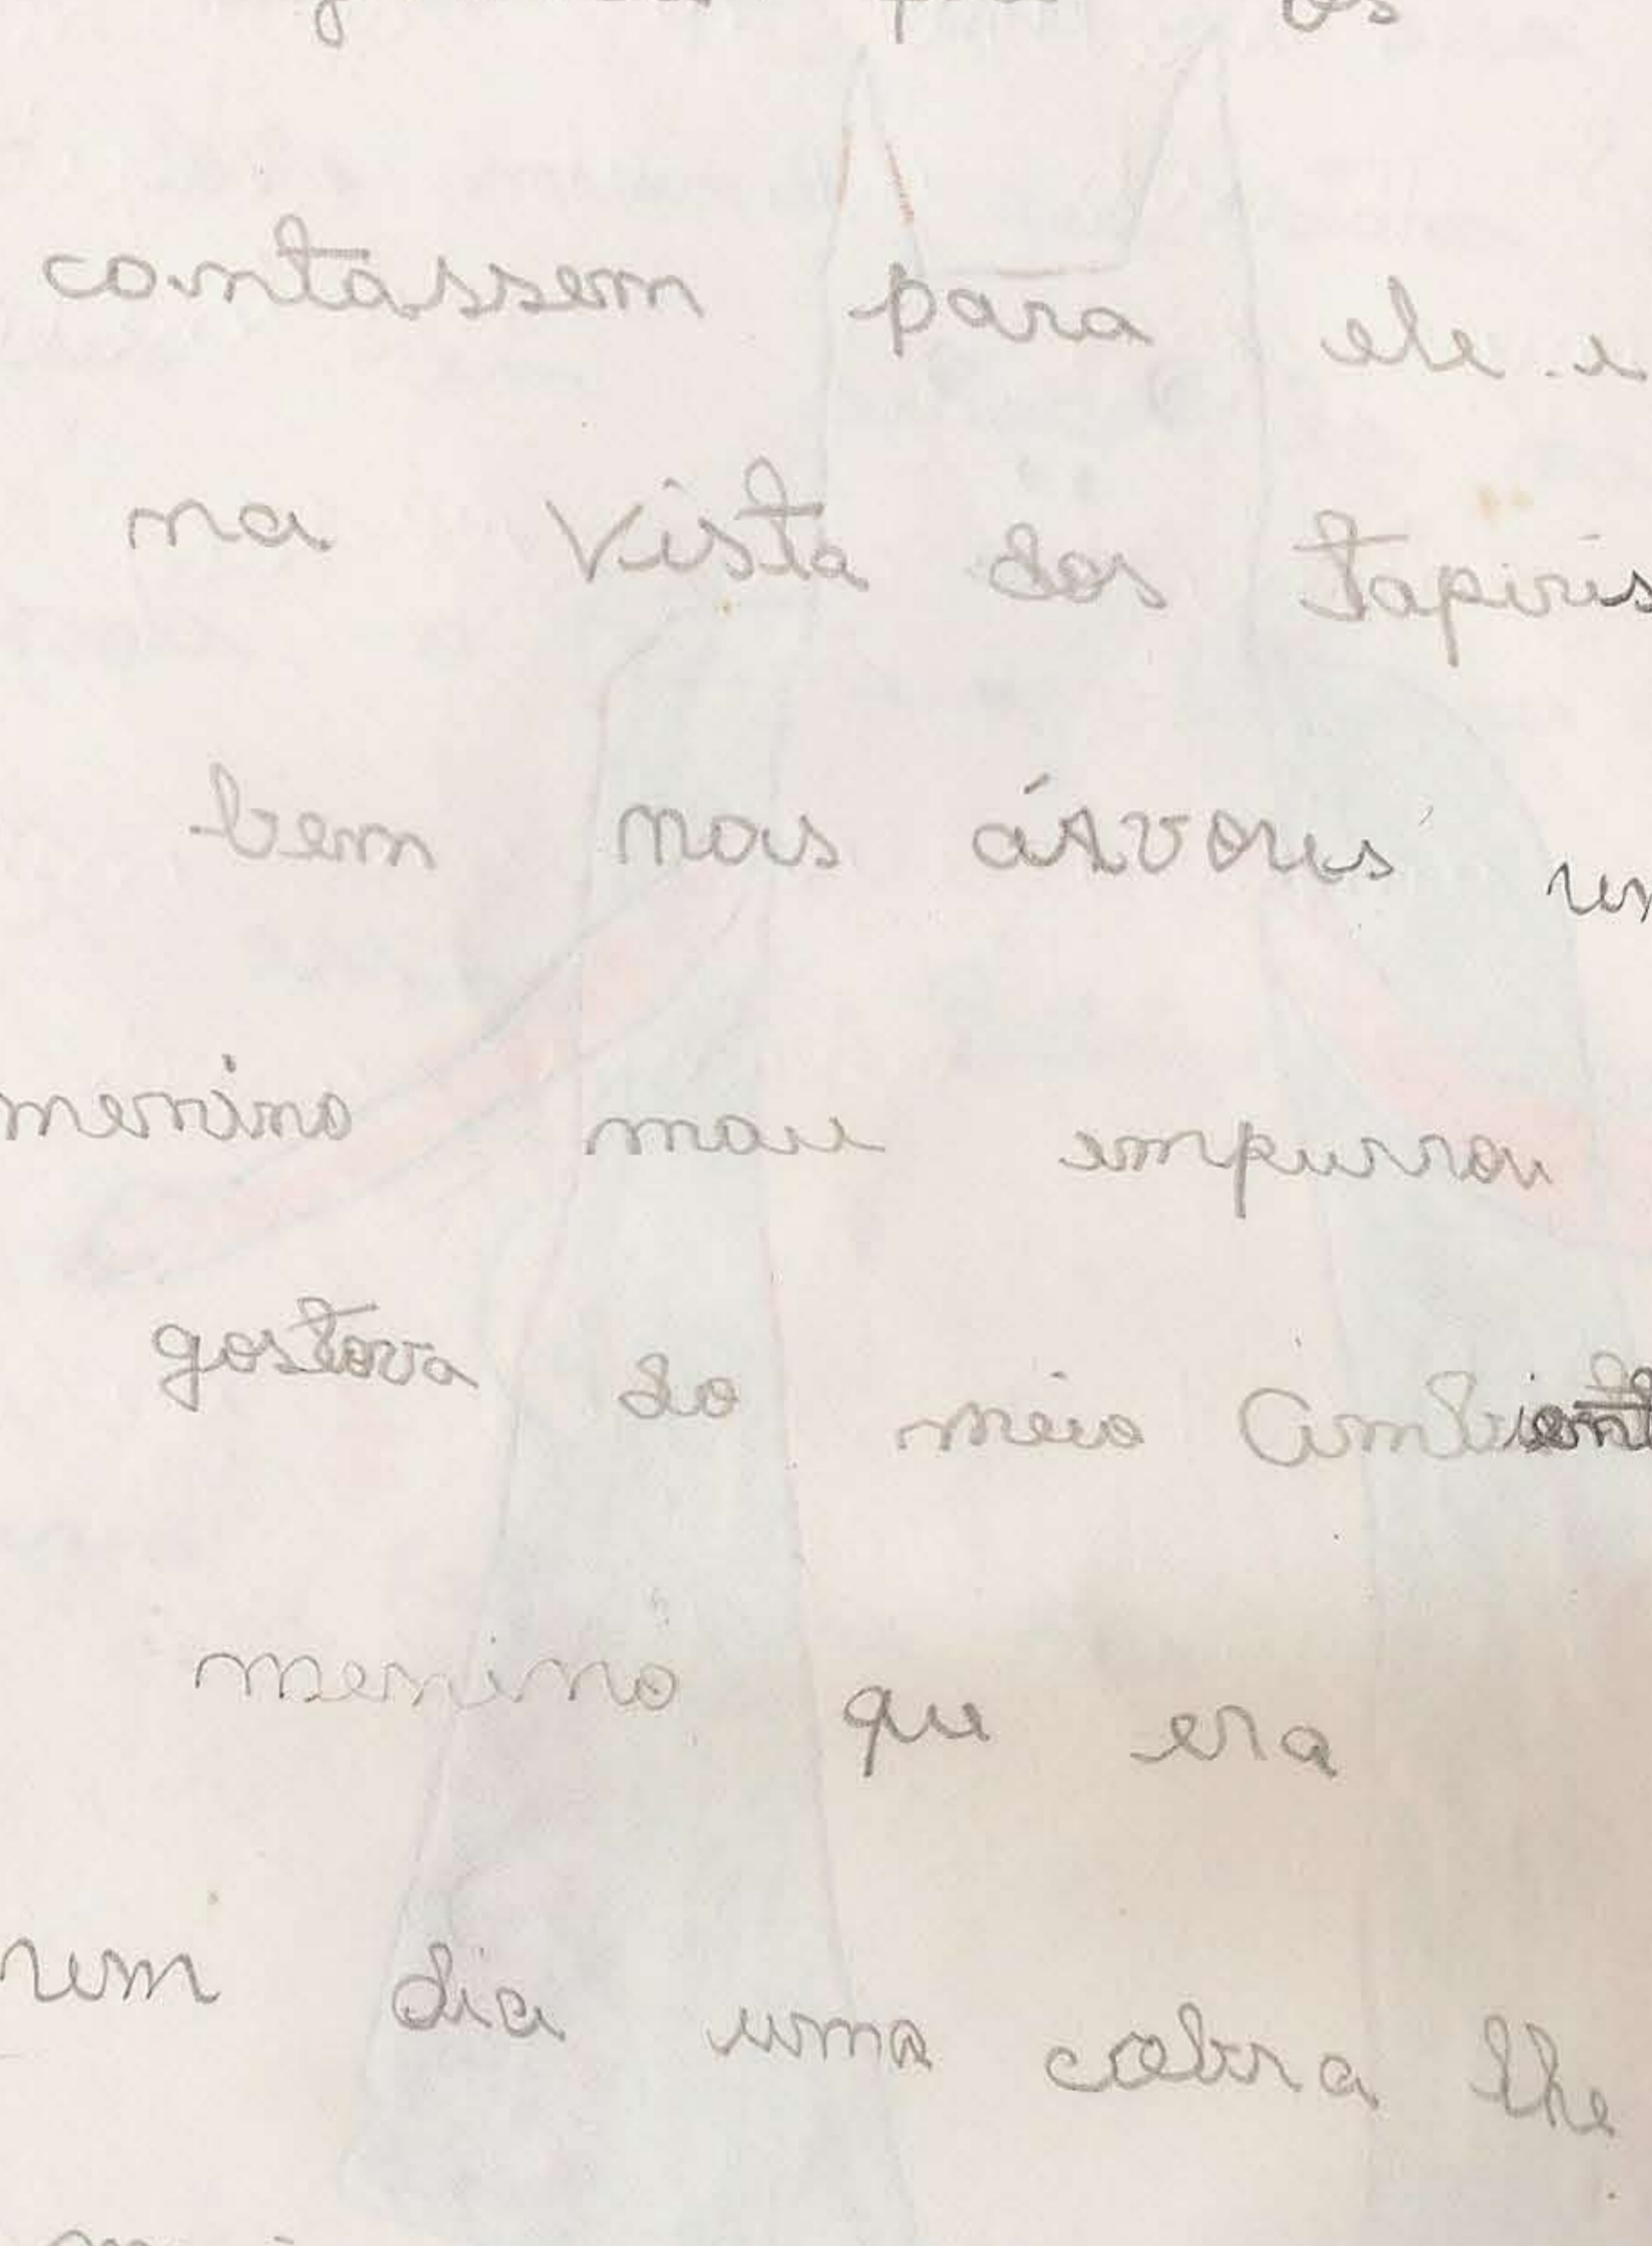 os
contassem para ele. e
na vista dos tapiris
bem nas árvores um
menino mau empurrou
gostava do meio Ambient
menino que era
um dia uma cobra lhe